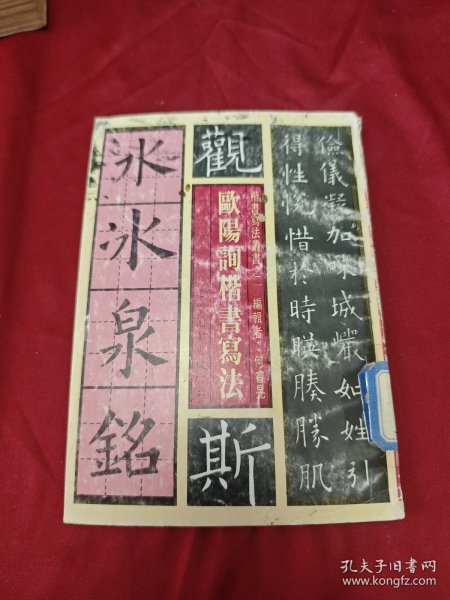 儉儀凝加哧城嚴如姓引
得性悦惜於時暎腠勝肌
觀
斯
楷書寫法叢書之一 編輯者:何容晃
歐陽詢楷書寫法
氷
氷
泉
銘
孔夫子旧书网
www.kongfz.com